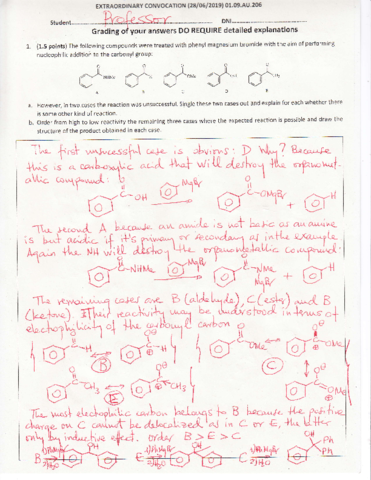 EXTRAORDINARY CONVOCATION (28/06/2019) 01.09.AU.206
Student Professor DNI
Grading of your answers DO REQUIRE detailed explanations
1. (1.5 points) The following compounds were treated with phenyl magnesium bromide with the aim of performing
nucleophilic addition to the carbonyl group:
A B C D E
a. However, in two cases the reaction was unsuccessful. Single these two cases out and explain for each whether there
is some other kind of reaction.
b. Order from high to low reactivity the remaining three cases where the expected reaction is possible and draw the
structure of the product obtained in each case.
The first unsuccessful case is obvious: D Why? Because
this is a carboxylic acid that will destroy the organomet-
allic compound:
O O
C-OH MgBr C-OMgBr + H
The second A because an amide is not basic as an amine
is but acidic if it's primary or secondary as in the example
Again the NH will destroy the organometallic compound:
O MgBr O H
C-NHMe C-NMe +
MgBr
The remaining cases are B (aldehyde), C (ester) and B
(ketone). Their reactivity may be understood in terms of
electrophilicity of the carbonyl carbon
H H OMe OMe
B C
CH3 CH3 OMe
E
The most electrophilic carbon belongs to B because the positive
charge on C cannot be delocalized as in C or E, the latter
only by inductive effect. order B > E > C
1) PhMgBr 1) PhMgBr 1) PhMgBr OH Ph
B E C Ph
2) H2O 2) H2O 2) H2O